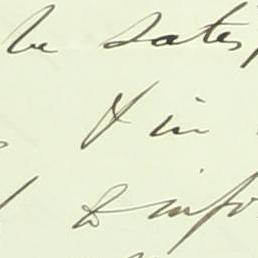 be sates
& in
& info